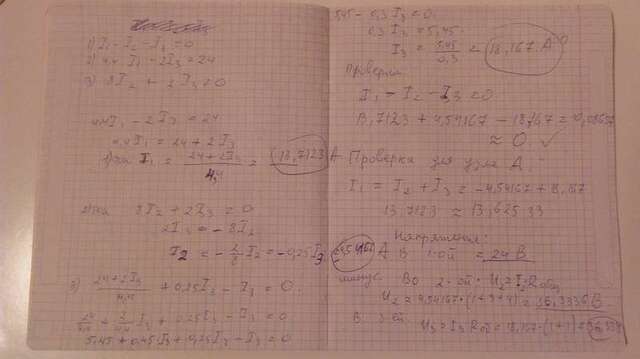 1) I₁ - I₂ - I₃ = 0
2) 4,4 I₁ - 2I₃ = 24
3) 8I₂ + 2I₃ = 0
4,4I₁ - 2I₃ = 24
4,4I₁ = 24 + 2I₃
I₁ = (24+2I₃)/4,4 = 13,7123 A
8I₂ + 2I₃ = 0
2I₃ = -8I₂
I₂ = -2/8 I₃ = -0,25I₃
3) (24+2I₃)/4,4 + 0,25I₃ - I₃ = 0
24/4,4 + 2/4,4 I₃ + 0,25I₃ - I₃ = 0
5,45 + 0,45I₃ + 0,25I₃ - I₃ = 0
5,45 - 0,3I₃ = 0
0,3I₃ = 5,45
I₃ = 5,45/0,3 = 18,167 A
Проверка
I₁ - I₂ - I₃ = 0
13,7123 + 4,54167 - 18,167 =
≈ 0
Проверка для узла A
I₁ = I₂ + I₃ = -4,54167 + 18,167
13,7123 ≈ 13,62533
Напряжения:
В 1-ой = 24 В
Во 2-ой U₂ = I₂R
U₂ = 4,54167·(1+3+4) = 36,3336 В
В 3-ей U₃ = I₃ R = 18,167·(1+1) =